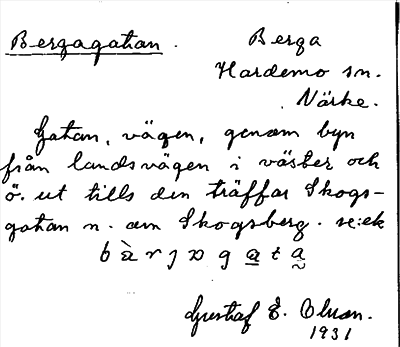 Bergagatan.
Berga
Hardemo sn.
Närke.
Gatan, vägen, genom byn
från landsvägen i väster och
ö. ut tills den träffar Skogs-
gatan n. om Skogsberg.
b à r j
g a t a
Gustaf E.
1931